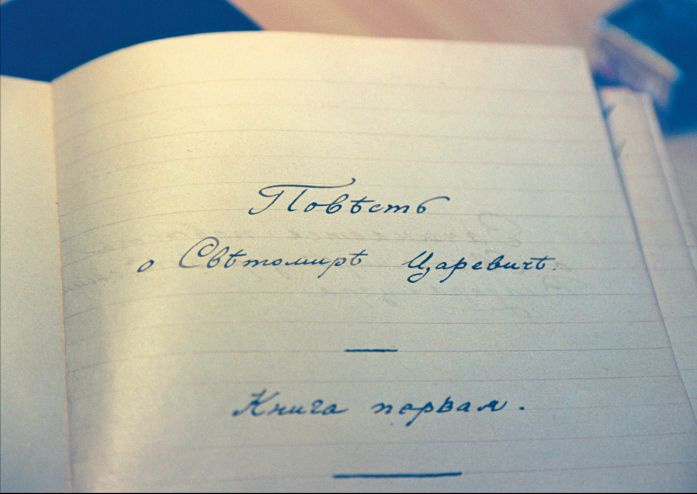 Повѣсть
о Свѣтомирѣ Царевичѣ.
Книга первая.